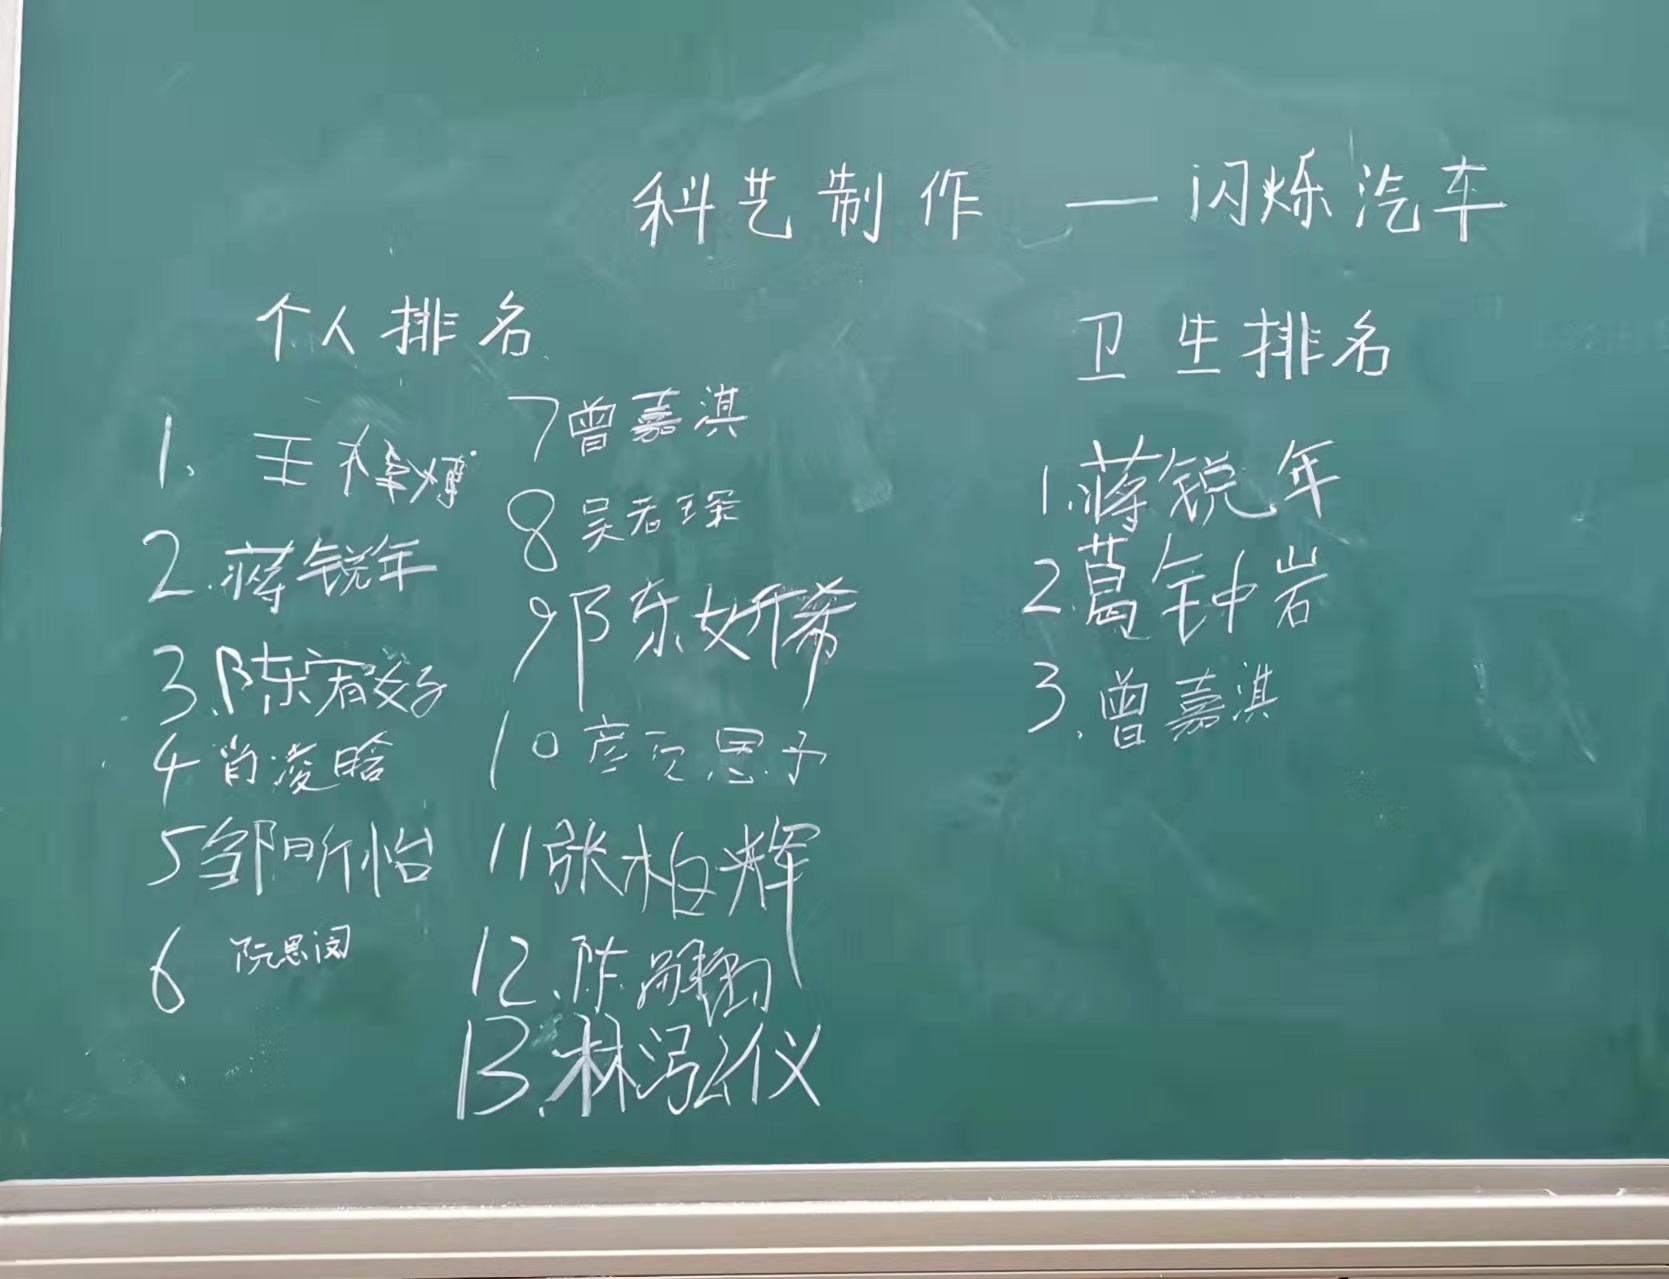 科艺制作 — 闪烁汽车
个人排名
1. 王梓
2. 蒋锐年
3. 陈宥妤
4 肖凌晗
5 邹昕怡
6 阮思阅
7 曾嘉淇
8 吴若琛
9 陈妍希
10 颜思予
11 张柏辉
12. 陈
13. 林泓仪
卫生排名
1. 蒋锐年
2. 葛钟岩
3. 曾嘉淇